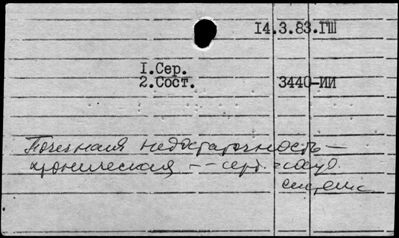 14.3.83.ГШ
1.Сер.
2.Сост. 3440-ИИ
Почечная недостаточность —
хроническая — серд.-сосуд.
система